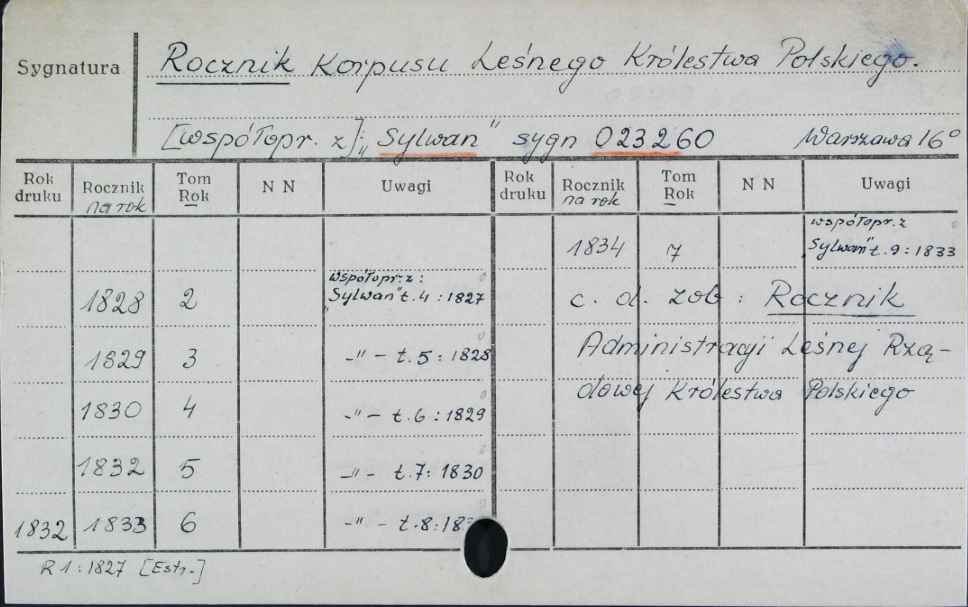 Sygnatura
Rocznik Korpusu Leśnego Królestwa Polskiego.
[współopr. z]: „Sylwan" sygn 023260 Warszawa 16°
Rok druku Rocznik na rok Tom Rok N N Uwagi Rok druku Rocznik na rok Tom Rok N N Uwagi
1834 7 współopr. z „Sylwan" t. 9 : 1833
1828 2 współopr. z : „Sylwan" t. 4 : 1827 c. d. zob : Rocznik
1829 3 -"- t. 5 : 1828 Administracji Leśnej Rzą-
1830 4 -"- t. 6 : 1829 dowej Królestwa Polskiego
1832 5 -"- t. 7 : 1830
1832 1833 6 -"- t. 8 :
R 1 : 1827 [Estr.]